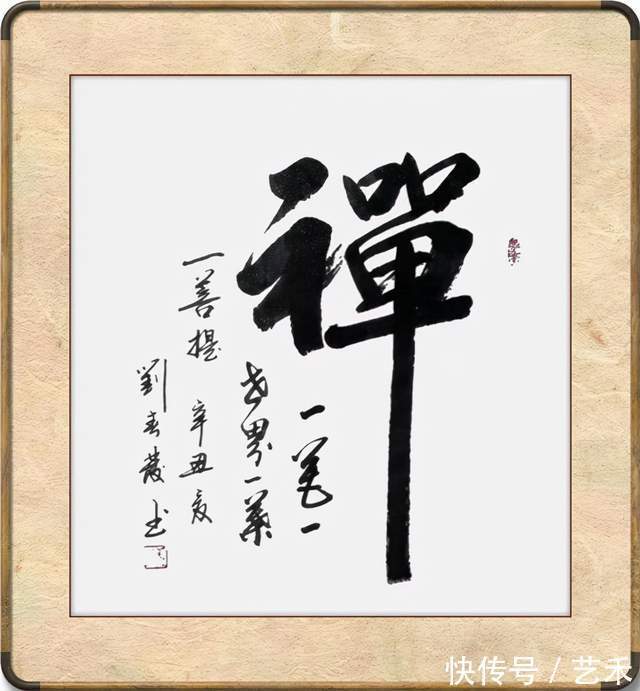 禪
一花一
世界一葉
一菩提 辛丑夏
劉春發书
快传号 / 艺禾